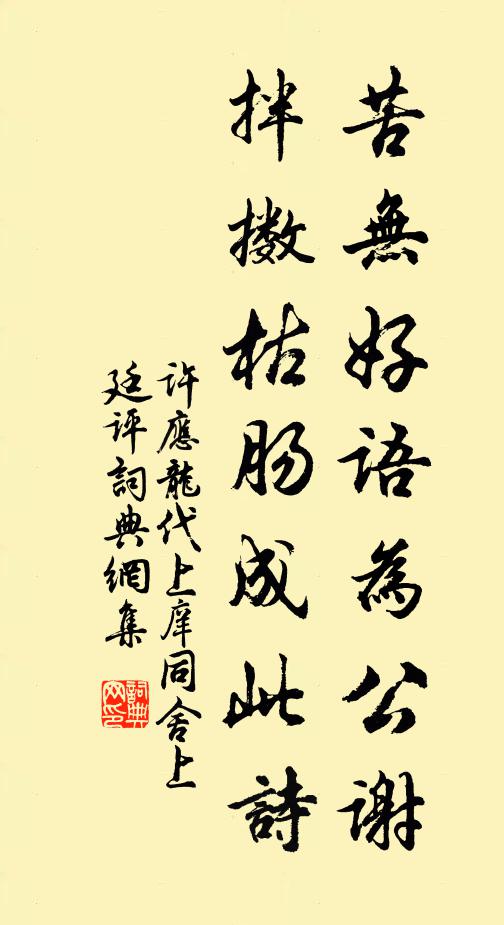 苦無好語為公謝
拌擻枯肠成此詩
許應龍代上庠同舍上
廷評詞典網集
詞典
网印